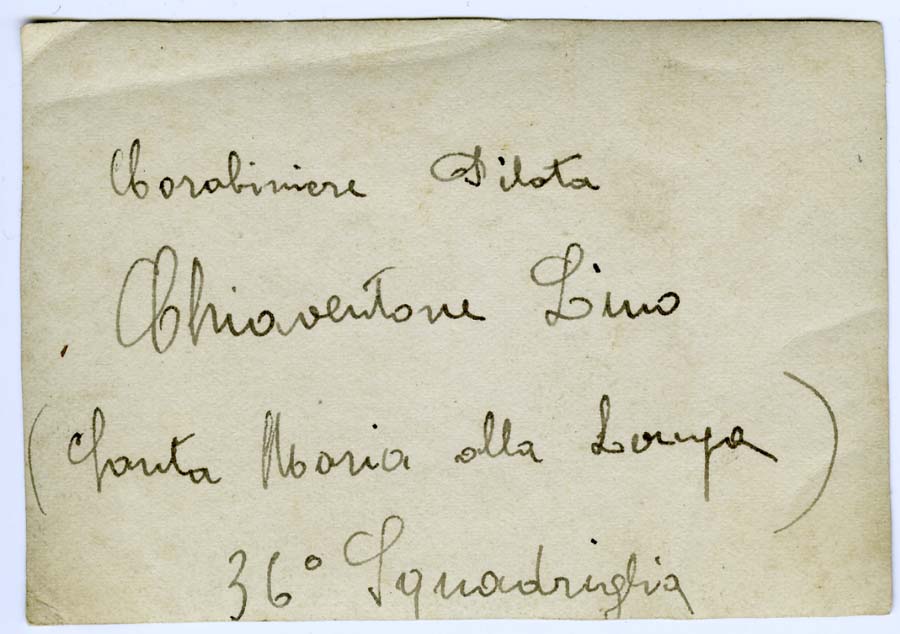 Carabiniere Pilota
Chiaventone Lino
(Santa Maria alla Longa)
36° Squadriglia